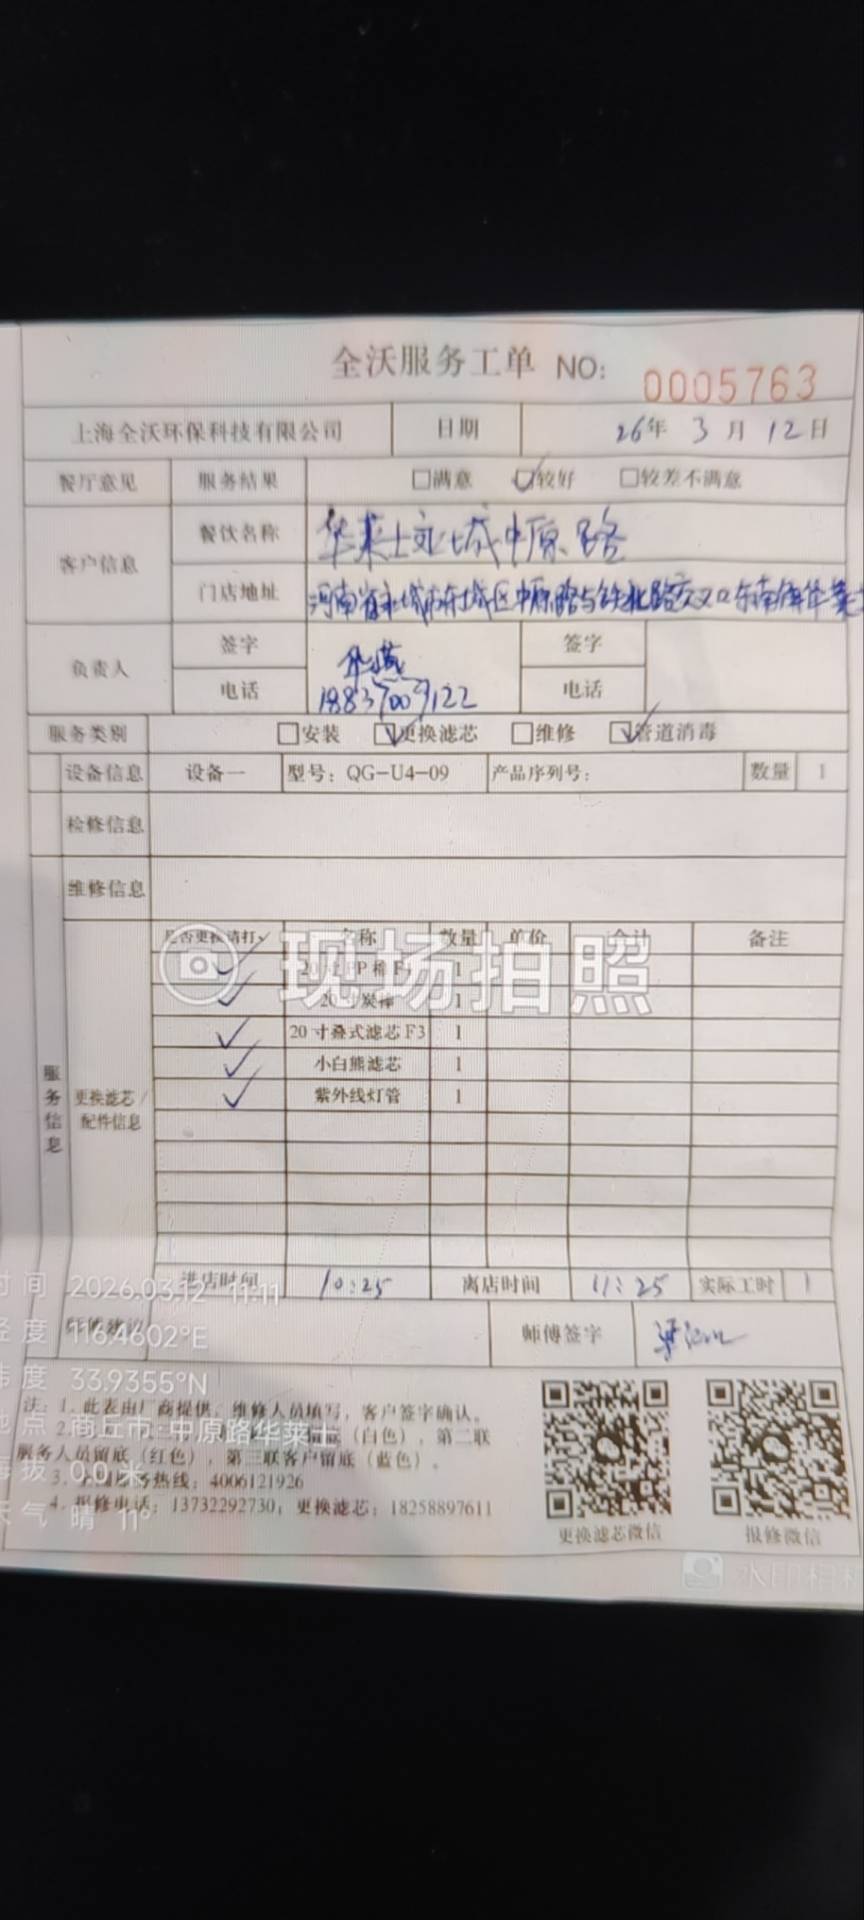 全沃服务工单 NO: 0005763
上海全沃环保科技有限公司 日期 26年 3月 12日
餐厅意见 服务结果 □满意 ☑较好 □较差不满意
客户信息 餐饮名称 华莱士永城中原路
门店地址 河南省永城市东城区中原路与铁北路交叉口东南角华莱士
负责人 签字 签字
电话 18837009122 电话
服务类别 □安装 ☑更换滤芯 □维修 ☑管道消毒
设备信息 设备一 型号: QG-U4-09 产品序列号: 数量 1
检修信息
维修信息
是否更换请打✓ 名称 数量 单价 合计 备注
✓ 20寸PP棉F1 1
✓ 20寸炭棒 1
✓ 20寸叠式滤芯F3 1
✓ 小白熊滤芯 1
✓ 紫外线灯管 1
服务信息
更换滤芯/配件信息
现场拍照
进店时间 10:25 离店时间 11:25 实际工时 1
师傅建议 师傅签字
注: 1. 此表由厂商提供、维修人员填写, 客户签字确认。
2. (白色), 第二联
服务人员留底(红色), 第三联客户留底(蓝色)。
3. 全国服务热线: 4006121926
4. 报修电话: 13732292730; 更换滤芯: 18258897611
更换滤芯微信 报修微信
时间 2026.03.12 11:11
经度 116.4602°E
纬度 33.9355°N
地点 商丘市·中原路华莱士
海拔 0.0米
天气 晴 11°
水印相机